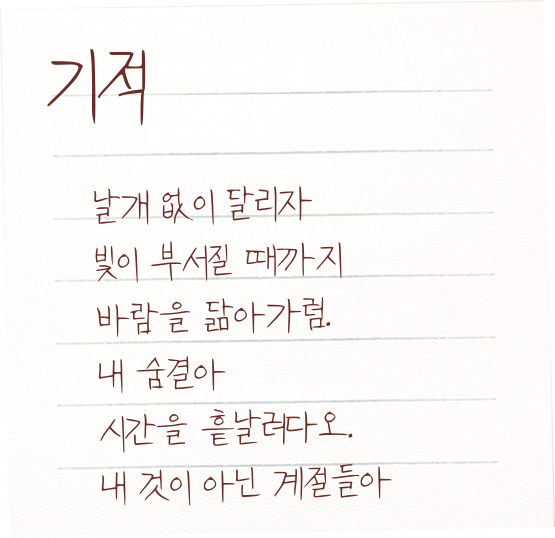 기적
날개 없이 달리자
빛이 부서질 때까지
바람을 닮아가렴.
내 숨결아
시간을 흩날려다오.
내 것이 아닌 계절들아